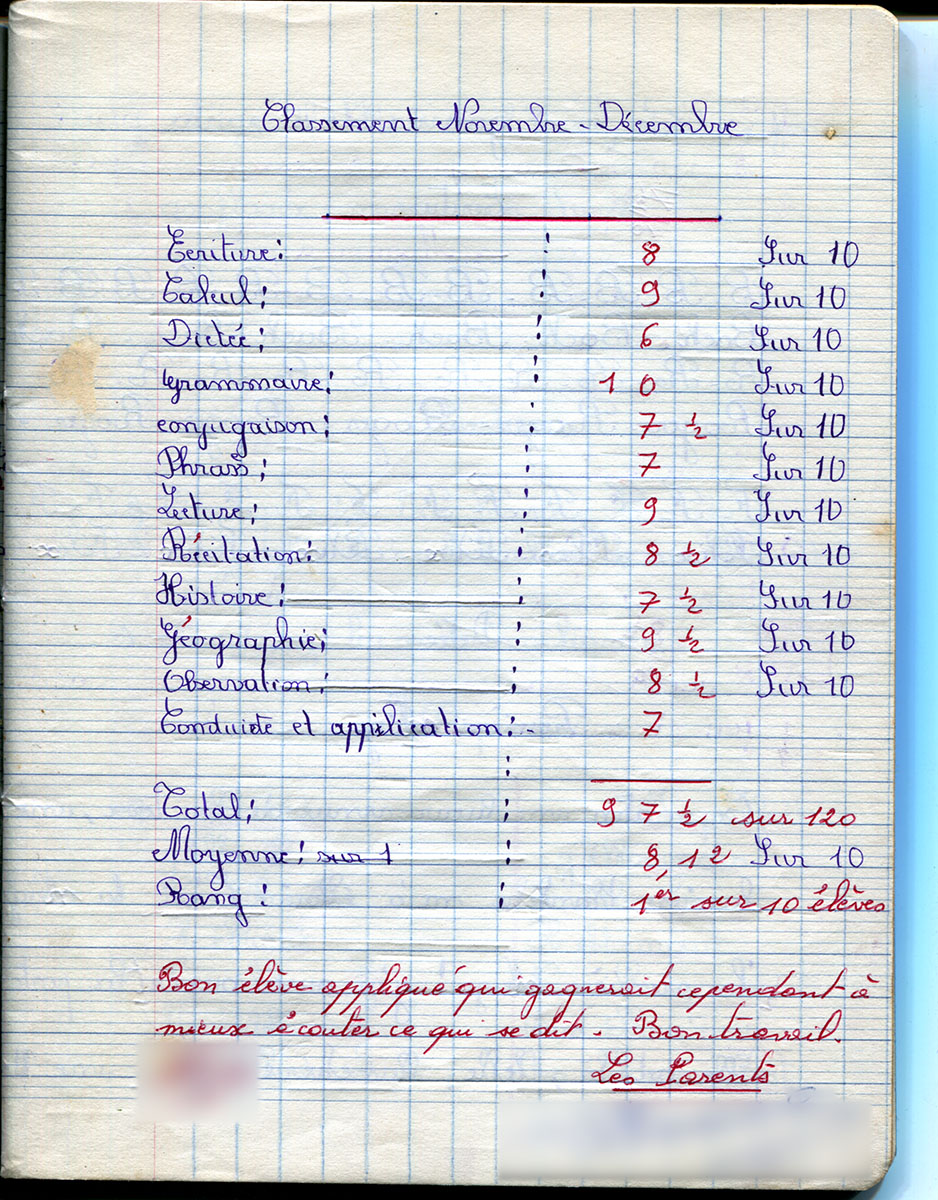 Classement Novembre - Décembre
Ecriture: 8 Sur 10
Calcul: 9 Sur 10
Dictée: 6 Sur 10
grammaire: 10 Sur 10
conjugaison: 7 ½ Sur 10
Phrases: 7 Sur 10
Lecture: 9 Sur 10
Récitation: 8 ½ Sur 10
Histoire: 7 ½ Sur 10
Géographie: 9 ½ Sur 10
Obervation: 8 ½ Sur 10
Conduiete et application: - 7
Total: 97 ½ sur 120
Moyenne: sur 1 8,12 Sur 10
Rang: 1er sur 10 élèves
Bon élève appliqué qui gagnerait cependant à
mieux écouter ce qui se dit. Bon travail.
Les Parents